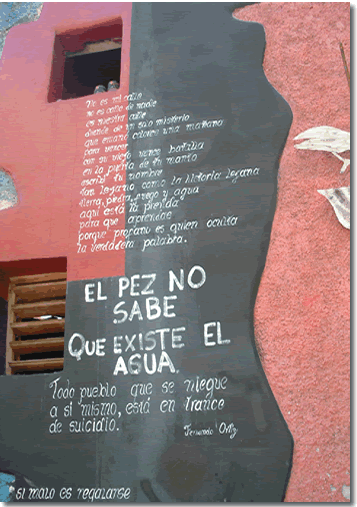 No es mi calle
no es calle de nadie
es nuestra calle
donde de un solo misterio
que emano colores una mañana
para vencer
con su viejo vence batalla
en la puerta de tu manto
escribí tu nombre
tan lozano como la historia lozana
tierra, piedra, fuego y agua
aquí está la prenda
para que aprendas
porque profano es quien oculta
la verdadera palabra.
EL PEZ NO
SABE
QUE EXISTE EL
AGUA.
Todo pueblo que se niegue
a si mismo, está en trance
de suicidio.
Fernando Ortiz
si malo es regalarse